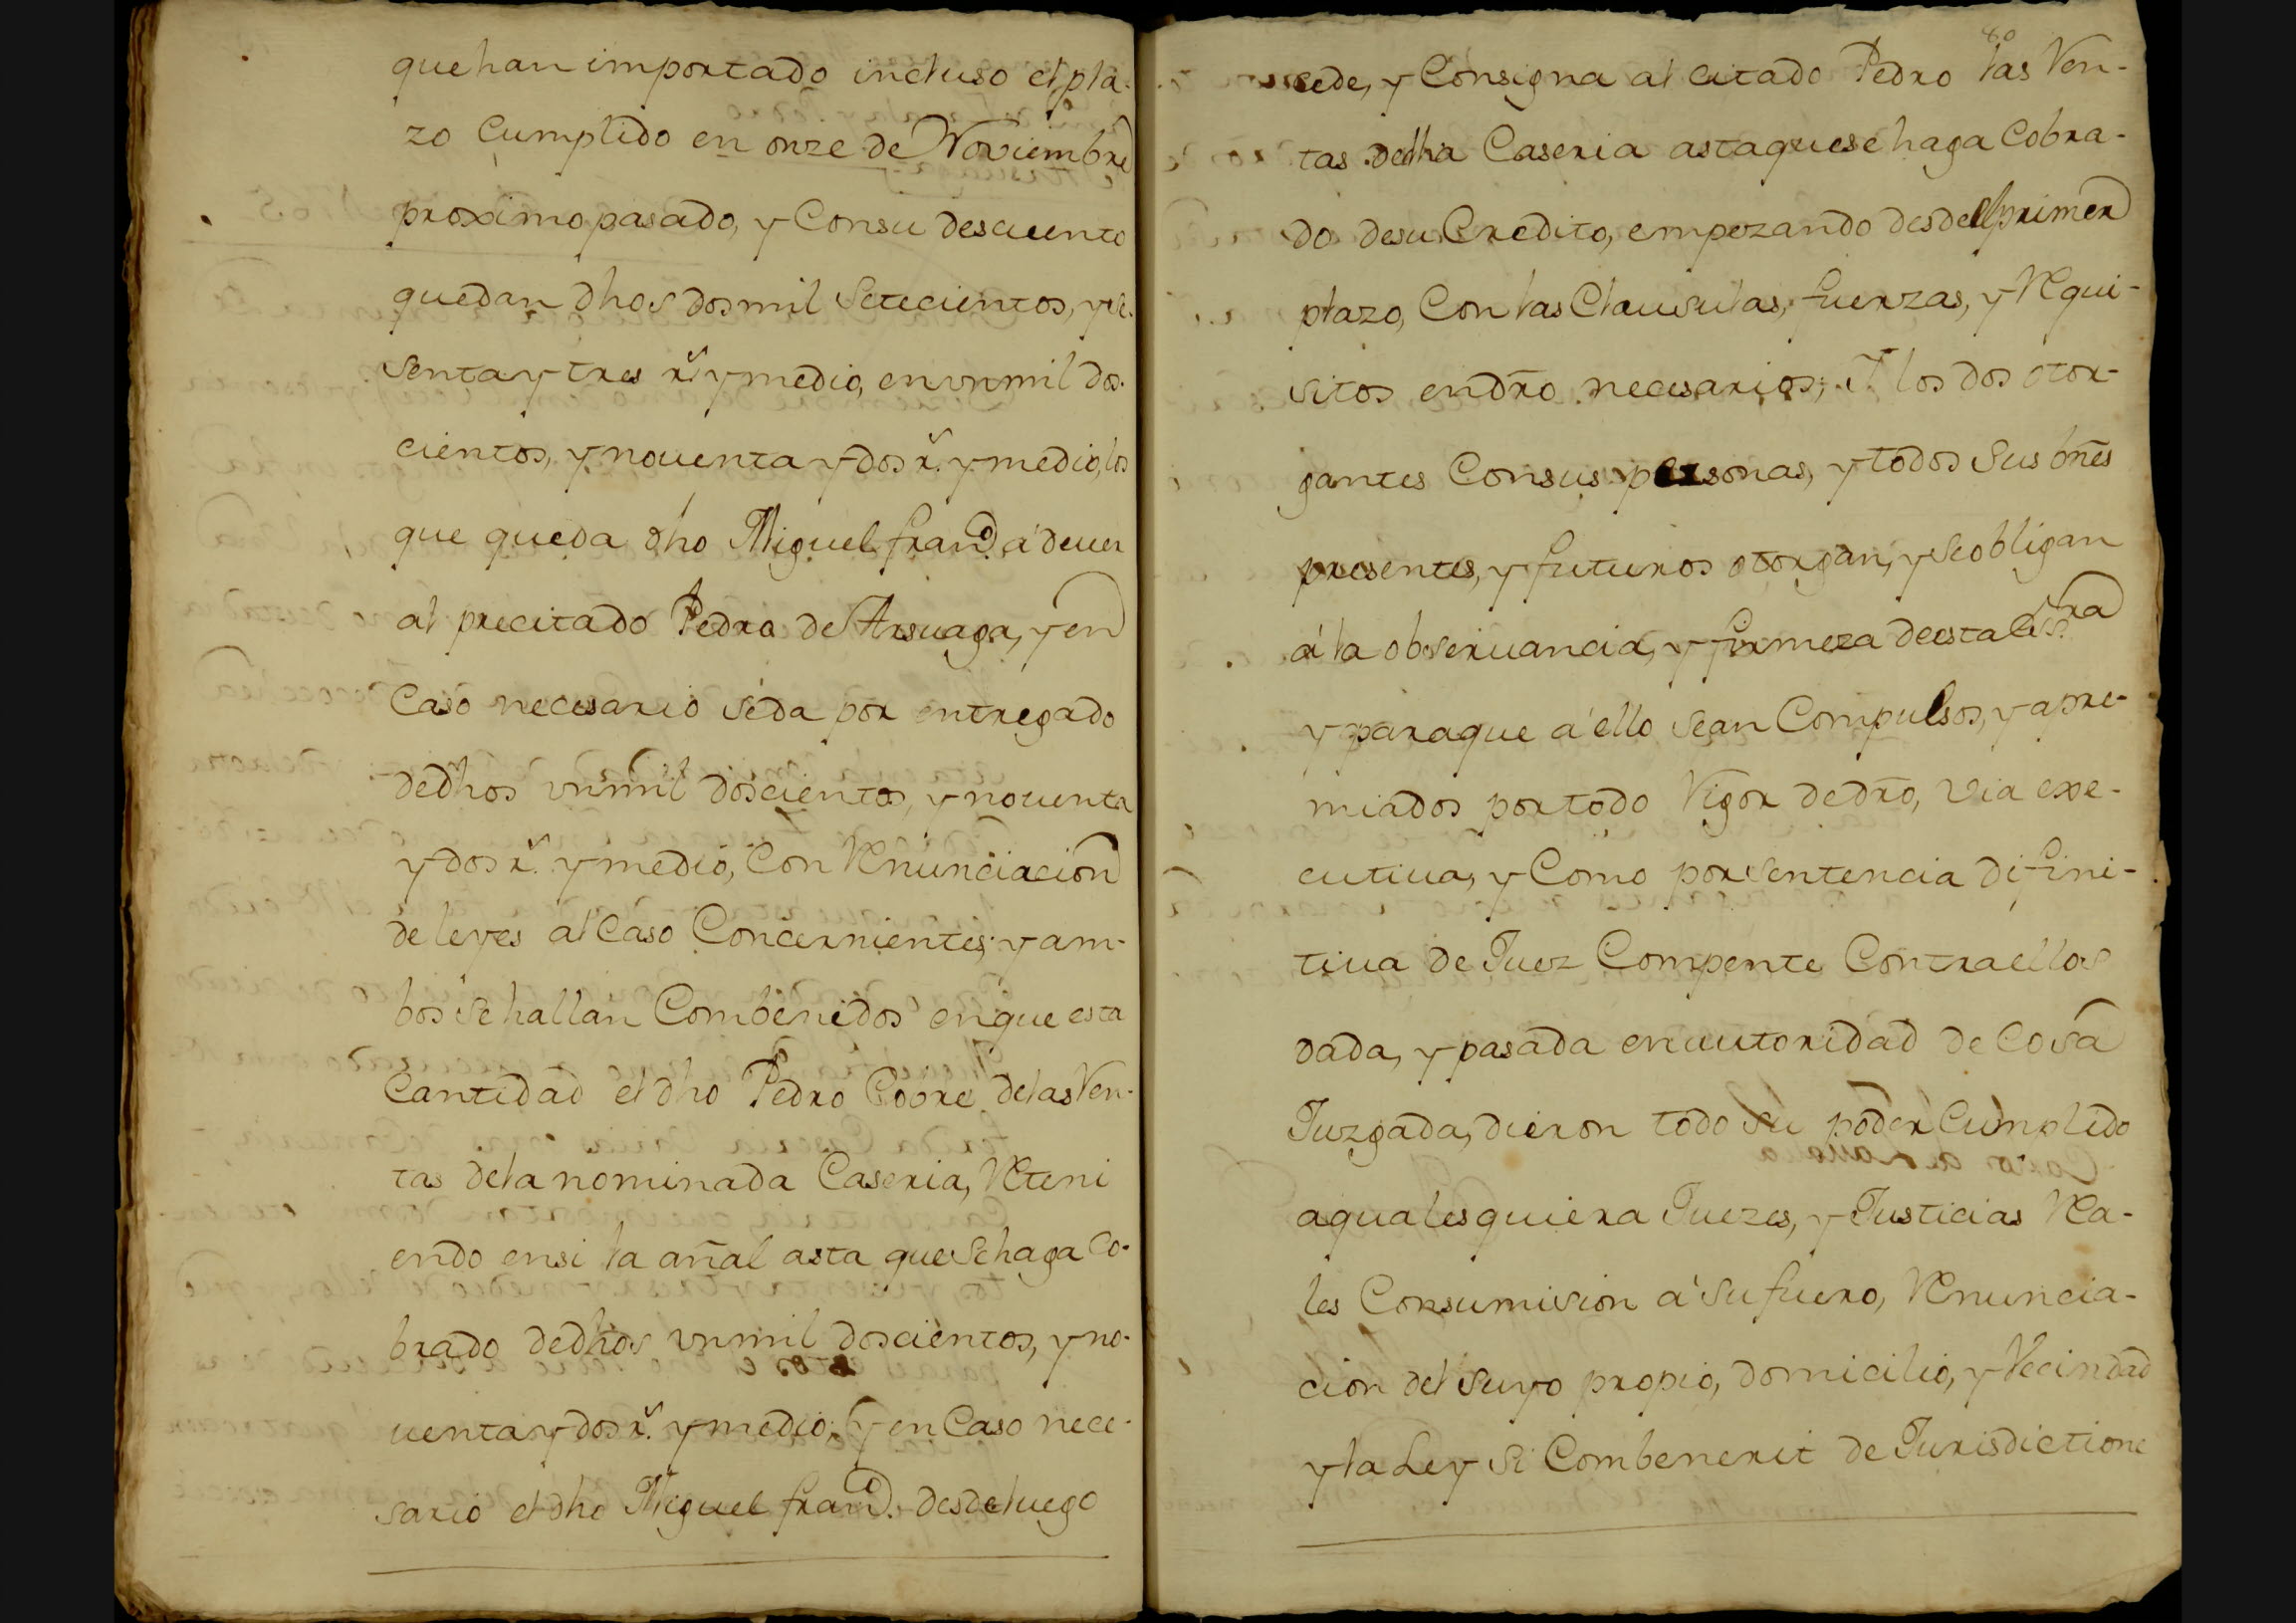 que han importado incluso el pla-
zo Cumplido en onze de Noviembre
proximo pasado, y Consu descuento
quedan dhos dosmil Setecientos, y se-
senta y tres r.s y medio, en vnmil dos-
cientos, y nouenta y dos r.s y medio, los
que queda dho Miguel fran.co á deuer
al precitado Pedro de Arsuaga, y en
Caso necesario seda por entregado
dedhos vnmil doscientos, y nouenta
y dos r.s y medio, Con Renunciacion
de leyes al Caso Concernientes; y am-
bos se hallan Combenidos en que esta
Cantidad el dho Pedro Cobre delas Ren-
tas dela nominada Caseria, Reteni
endo ensi la añal asta que se haga Co-
brado dedhos vnmil doscientos, y no-
uenta y dos r.s y medio; y en Caso nece-
sario el dho Miguel fran.co desdeluego
80
cede, y Consigna al citado Pedro las Ren-
tas dedha Caseria astaquese haga Cobra-
do desu Credito, empezando desdeel primer
plazo, Con las Clausulas, fuerzas, y Requi-
sitos endr̃o necesarios; I los dos otor-
gantes Consus personas, y todos Sus bñes
presentes, y futuros otorgan, y se obligan
á la obseruancia, y firmeza deesta Ess.ra
y paraque á ello sean Compulsos, y apre-
miados por todo Vigor dedr̃o, via exe-
cutiua, y Como por sentencia difini-
tiua de Juez Compente Contraellos
dada, y pasada en autoridad de Cosa
Juzgada, dieron todo su poder Cumplido
aqualesquiera Juezes, y Justicias Rea-
les Consumision á su fuero, Renuncia-
cion del suyo propio, domicilio, y Vecindad
y la Ley Si Combenerit de Jurisdictione